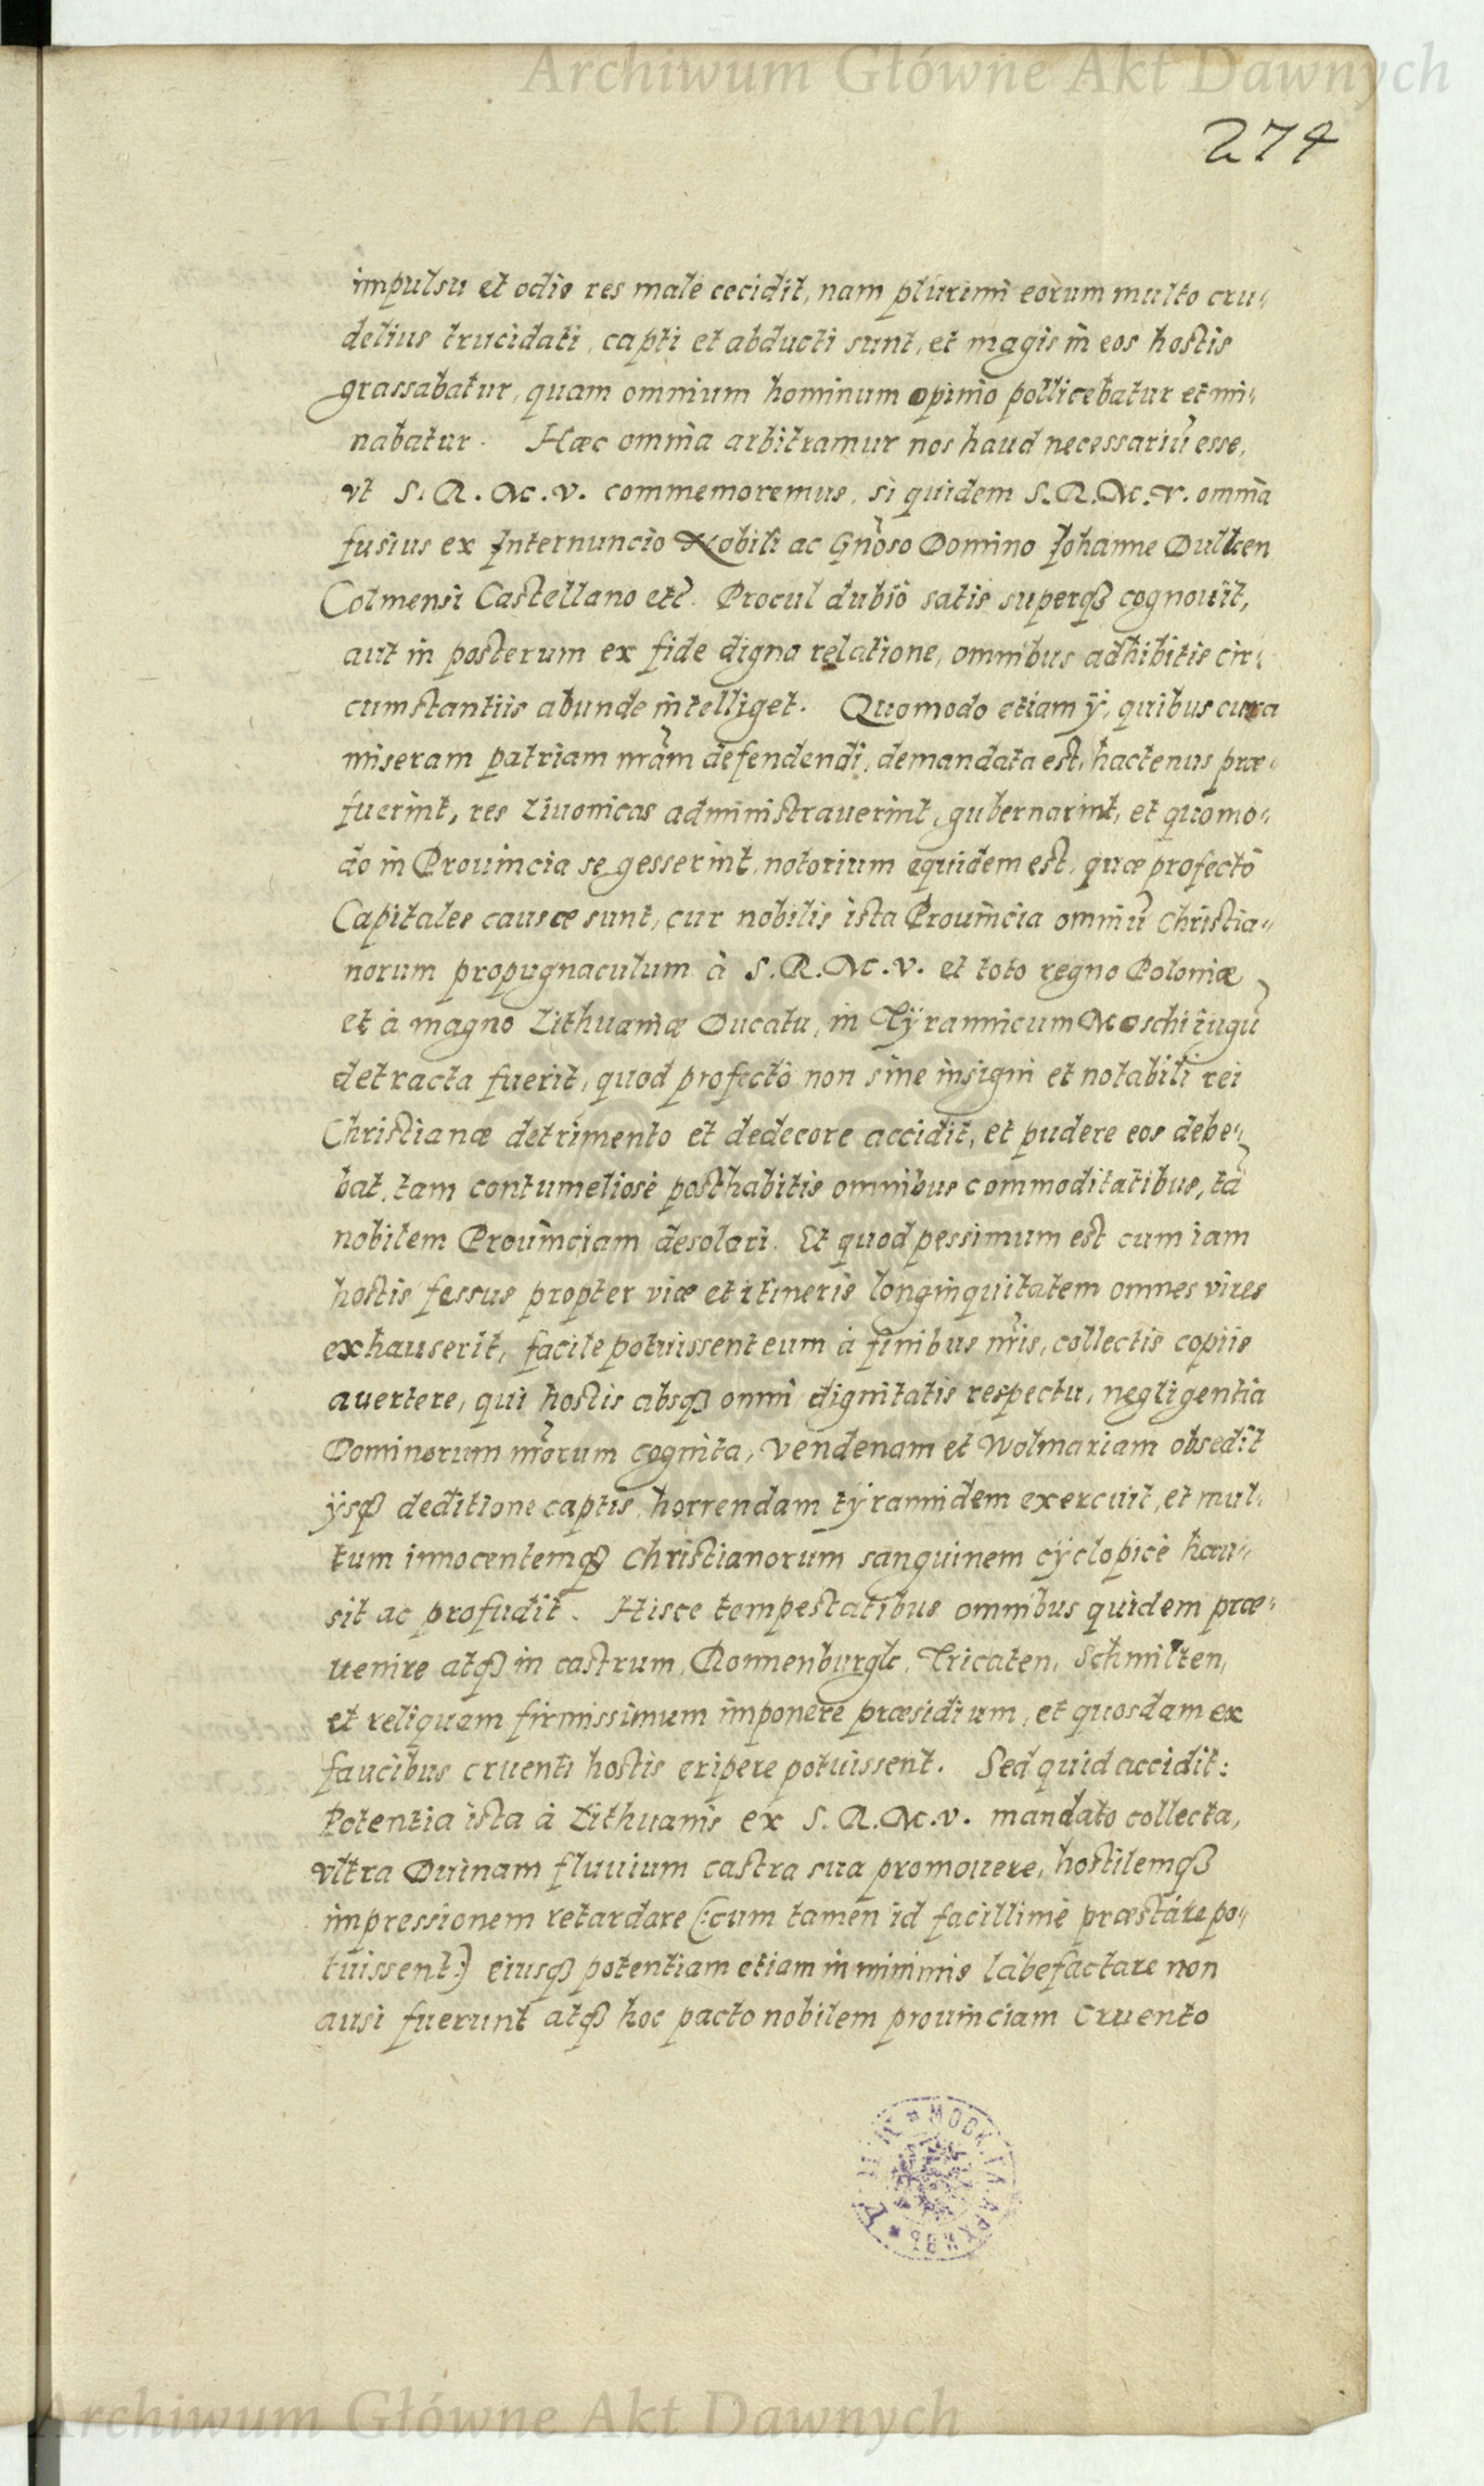 Archiwum Główne Akt Dawnych
274
impulsu et odio res male cecidit, nam plurimi eorum multo cru„
delius trucidati, capti et abducti sunt, et magis in eos hostis
grassabatur, quam omnium hominum opinio pollicebatur et mi„
nabatur. Hæc omnia arbitramur nos haud necessariū esse,
vt S. R. M. V. commemoremus, si quidem S. R. M. V. omnia
fusius ex Internuncio Nobili ac Gñoso Domino Johanne Dulken
Colmensi Castellano etc̃. Procul dubiò satis superqȝ cognouit,
aut in posterum ex fide digna relatione, omnibus adhibitis cir„
cumstantiis abunde intelliget. Quomodo etiam ÿ, quibus cura
miseram patriam nrãm defendendi, demandata est, hactenus præ„
fuerint, res Liuonicas administrauerint, gubernarint, et quomo„
do in Prouincia se gesserint, notorium equidem est, quæ profectò
Capitales causæ sunt, cur nobilis ista Prouincia omniū Christia„
norum propugnaculum à S. R. M. V. et toto regno Poloniæ
et à magno Lithuaniæ Ducatu, in Tÿrannicum Moschi iugū
detracta fuerit, quod profectò non sine insigni et notabili rei
Christianæ detrimento et dedecore accidit, et pudere eos debe„
bat, tam contumeliosè posthabitis omnibus commoditatibus, tā
nobilem Prouinciam desolari. Et quod pessimum est cum iam
hostis fessus propter viæ et itineris longinquitatem omnes vires
exhauserit, facile potuissent eum à finibus nr̃is, collectis copiis
auertere, qui hostis absqȝ omni dignitatis respectu, negligentia
Dominorum nr̃orum cognita, Vendenam et Wolmariam obsedit
ÿsqȝ deditione captis, horrendam tÿrannidem exercuit, et mul„
tum innocentemqȝ Christianorum sanguinem cÿclopicè hau„
sit ac profudit. Hisce tempestatibus omnibus quidem præ„
uenire atqȝ in castrum, Ronnenburgk, Tricaten, Schmilten,
et reliquam firmissimum imponere præsidium, et quosdam ex
faucibus cruenti hostis eripere potuissent. Sed quid accidit:
Potentia ista à Lithuanis ex S. R. M. V. mandato collecta,
vltra Duinam fluuium castra sua promouere, hostilemqȝ
impressionem retardare (:cum tamen id facillimè præstare po„
tuissent:) eiusqȝ potentiam etiam in minimis labefactare non
ausi fuerunt atqȝ hoc pacto nobilem prouinciam cruento
Archiwum Główne Akt Dawnych